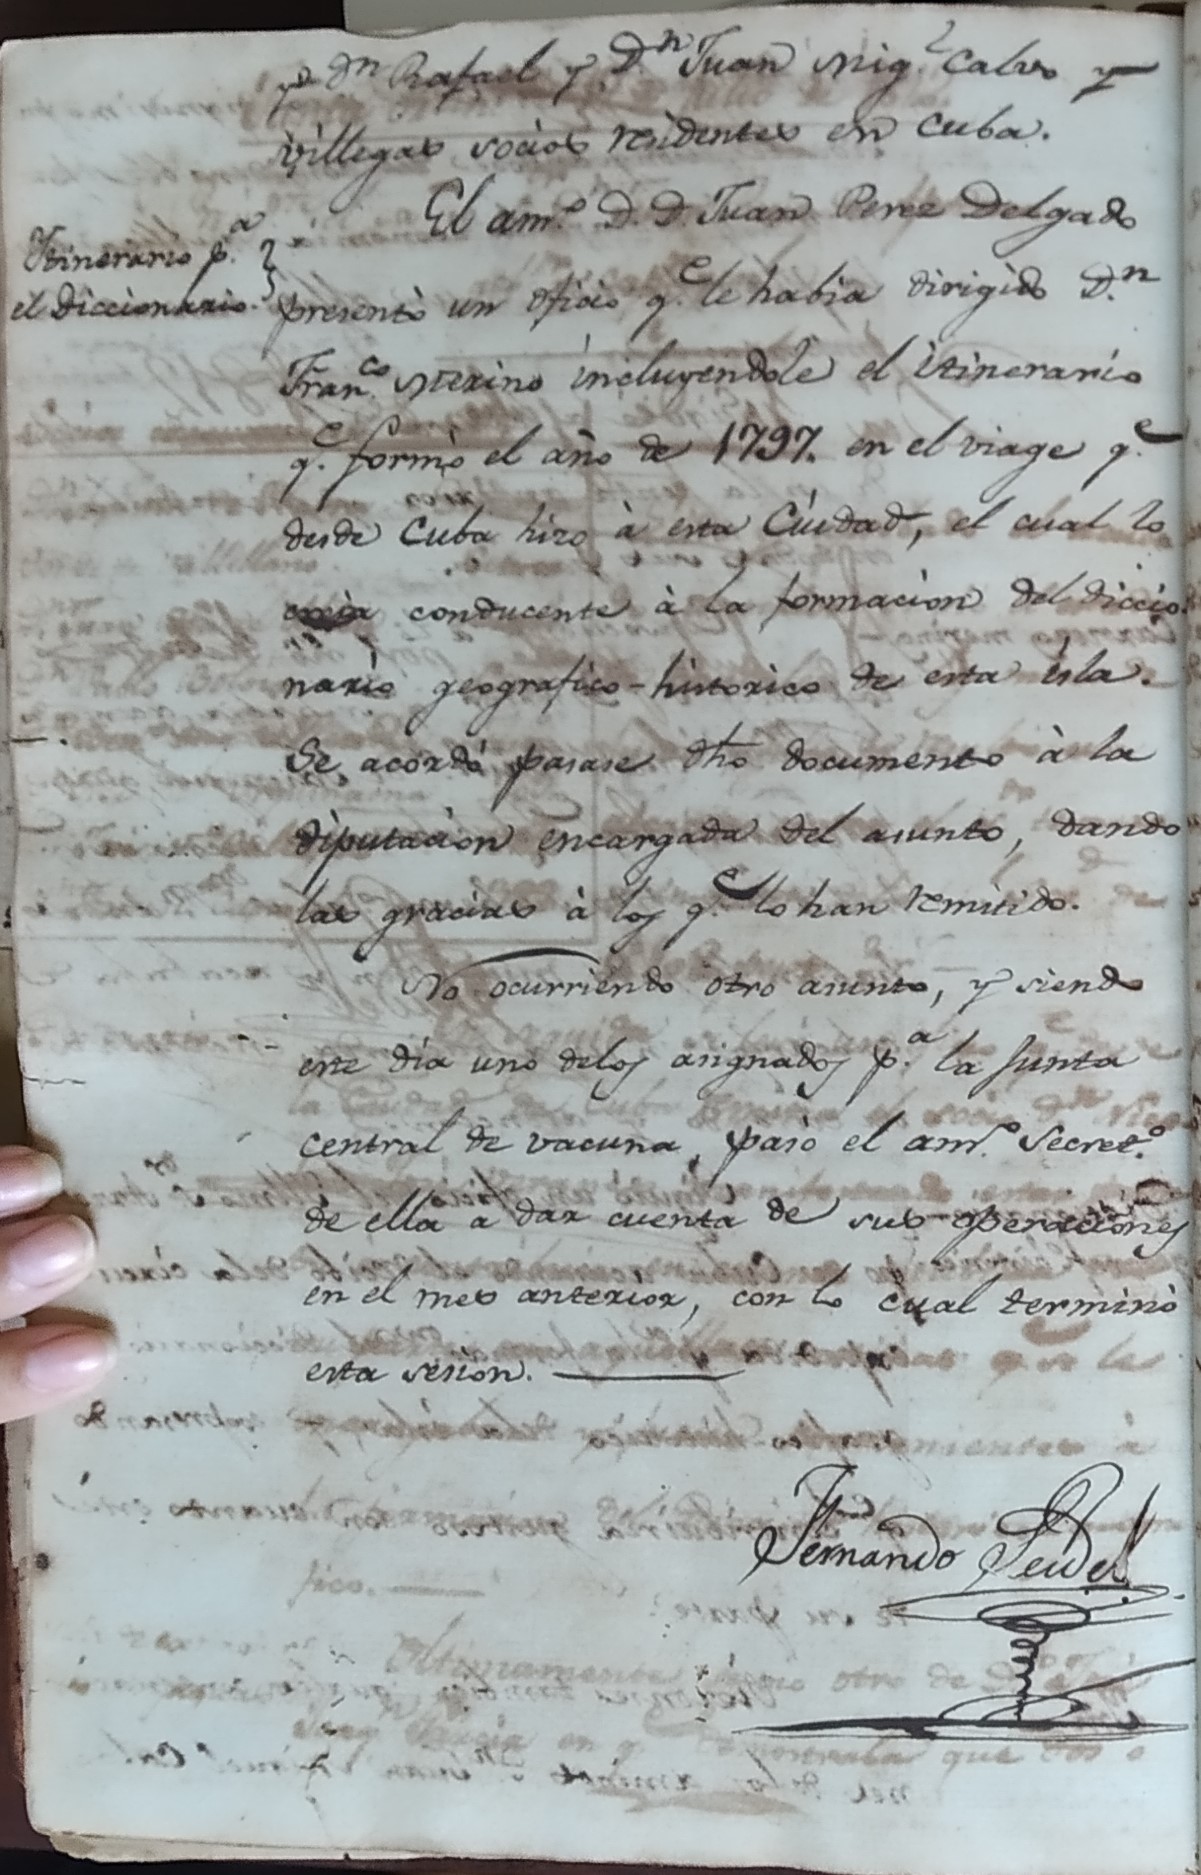 y Dn Rafael y Dn Juan Mig.l Calvo y
villegas socios residentes en Cuba.
El am.o D. D. Juan Perez Delgado
Itinerario p.a
el Diccionario.
presentó un oficio q.e le habia dirigido D.n
Fran.co Merino incluyendole el itinerario
q.e formó el año de 1797. en el viage q.e
desde Cuba hizo à esta Ciudad, el cual lo
creía conducente à la formacion del diccio-
nario geografico-historico de esta isla.
Se acordó pasase dho documento à la
diputacion encargada del asunto, dando
las gracias à los q.e lo han remitido.
No ocurriendo otro asunto, y siendo
este dia uno delos asignados p.a la Junta
central de vacuna, pasó el am.o Secret.o
de ella a dar cuenta de sus operaciones
en el mes anterior, con lo cual terminó
esta sesion.
Fernando Seidel